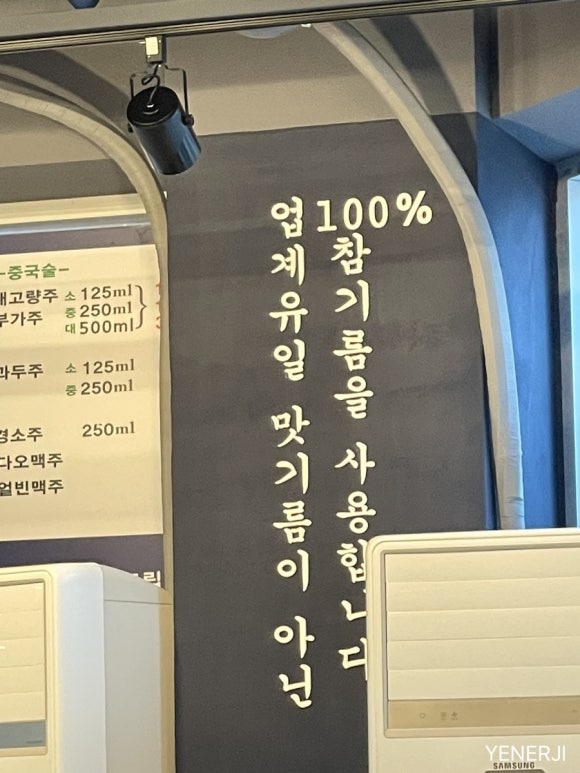 -중국술-
태고량주 소 125ml
부가주 중 250ml
대 500ml
과두주 소 125ml
중 250ml
경소주 250ml
다오맥주
얼빈맥주
업계유일 맛기름이 아닌
100% 참기름을 사용합니다
SAMSUNG
YENERJI